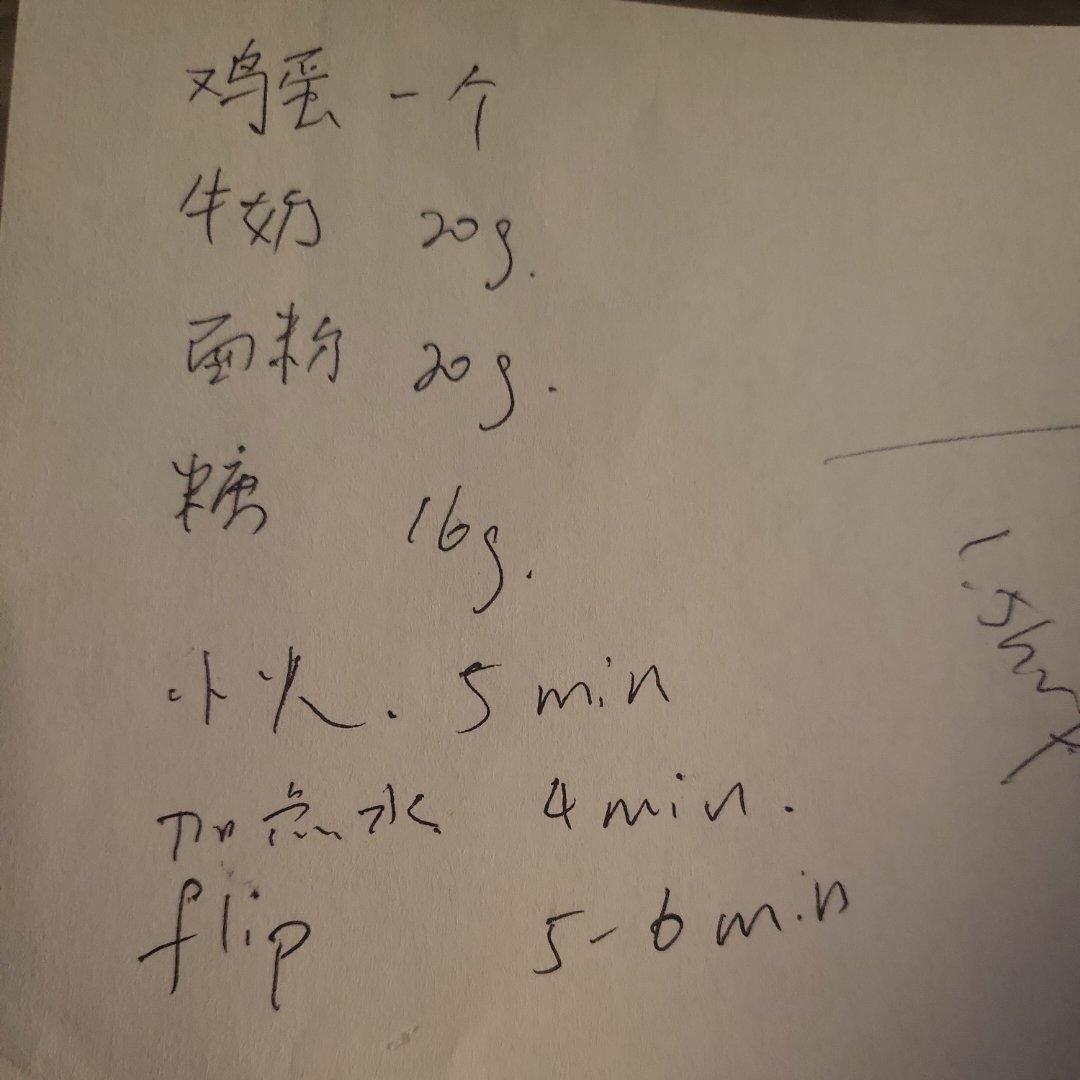 鸡蛋 一个
牛奶 20g.
面粉 20g.
糖 16g.
小火. 5 min
加点水 4 min.
flip 5-6 min